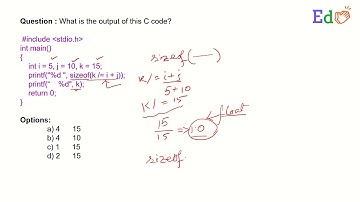 Ed
Question : What is the output of this C code?
#include <stdio.h>
int main()
{
int i = 5, j = 10, k = 15;
printf("%d ", sizeof(k /= i + j));
printf(" %d", k);
return 0;
}
Options:
a) 4 15
b) 4 10
c) 1 15
d) 2 15
sizeof( )
k/= i+j
5+10
k/= 15
15
15
=> 1.0
float
sizeof